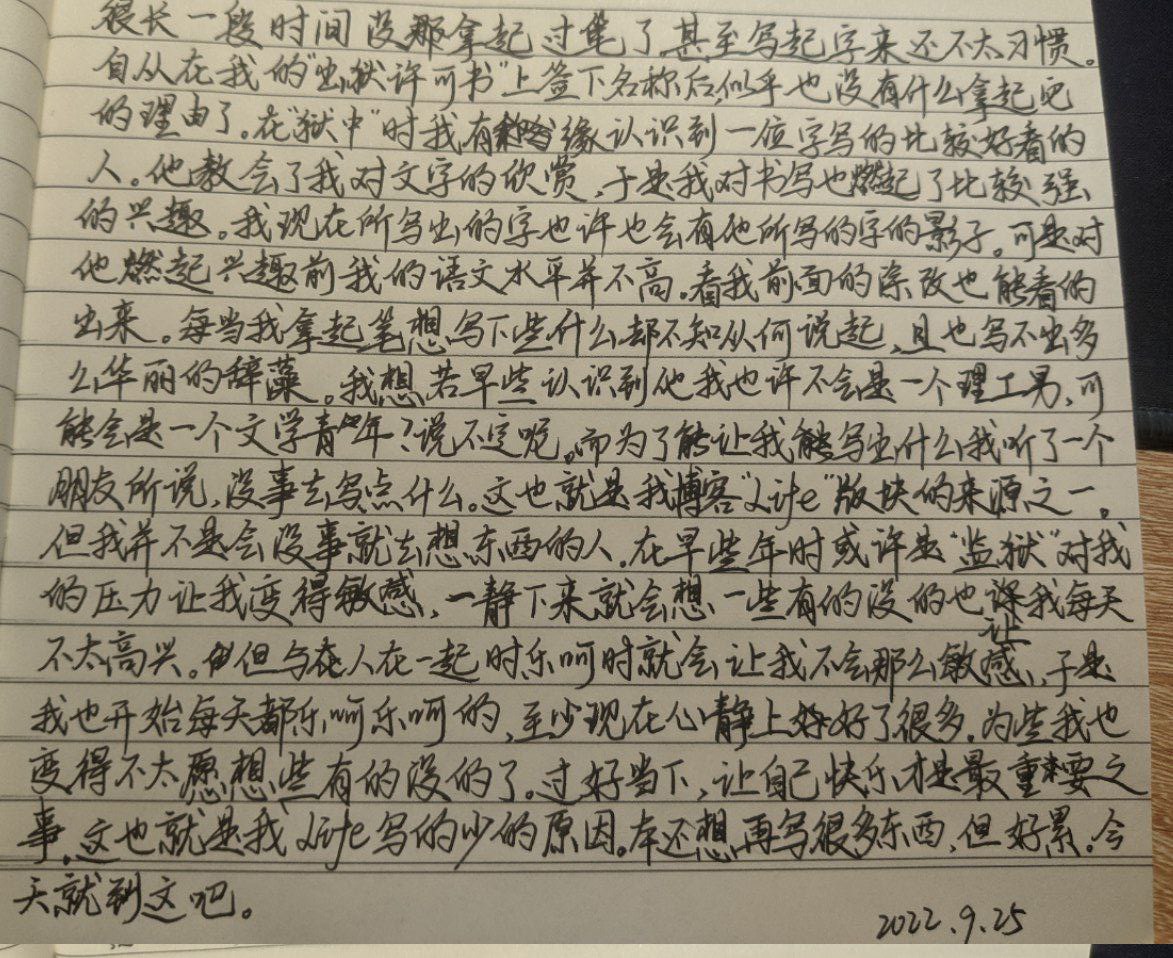 很长一段时间没都拿起过笔了，甚至写起字来还不太习惯。
自从在我的"出狱许可书"上签下名称后，似乎也没有什么拿起吧
的理由了。在"狱中"时我有缘认识到一位字写的比较好看的
人。他教会了我对文字的欣赏，于是我对书写也燃起了比较强
的兴趣。我现在所写出的字也许也会有他所写的字的影子。可是对
他燃起兴趣前我的语文水平并不高。看我前面的涂改也能看的
出来。每当我拿起笔想写下些什么却不知从何说起，且也写不出多
么华丽的辞藻。我想若早些认识到他我也许不会是一个理工男，可
能会是一个文学青年？说不定呢。而为了能让我能写出什么我听了一个
朋友所说，没事去写点什么。这也就是我博客"Life"版块的来源之一。
但我并不是会没事就去想东西的人。在早些年时或许是"监狱"对我
的压力让我变得敏感，一静下来就会想一些有的没的也让我每天
不太高兴。但与在人在一起时乐呵时就会让我不会那么敏感，于是
我也开始每天都乐呵乐呵的，至少现在心静上好了很多。为些我也
变得不太愿想些有的没的了。过好当下，让自己快乐才是最重要之
事。这也就是我Life写的少的原因。本还想再写很多东西，但好累。今
天就到这吧。
2022.9.25